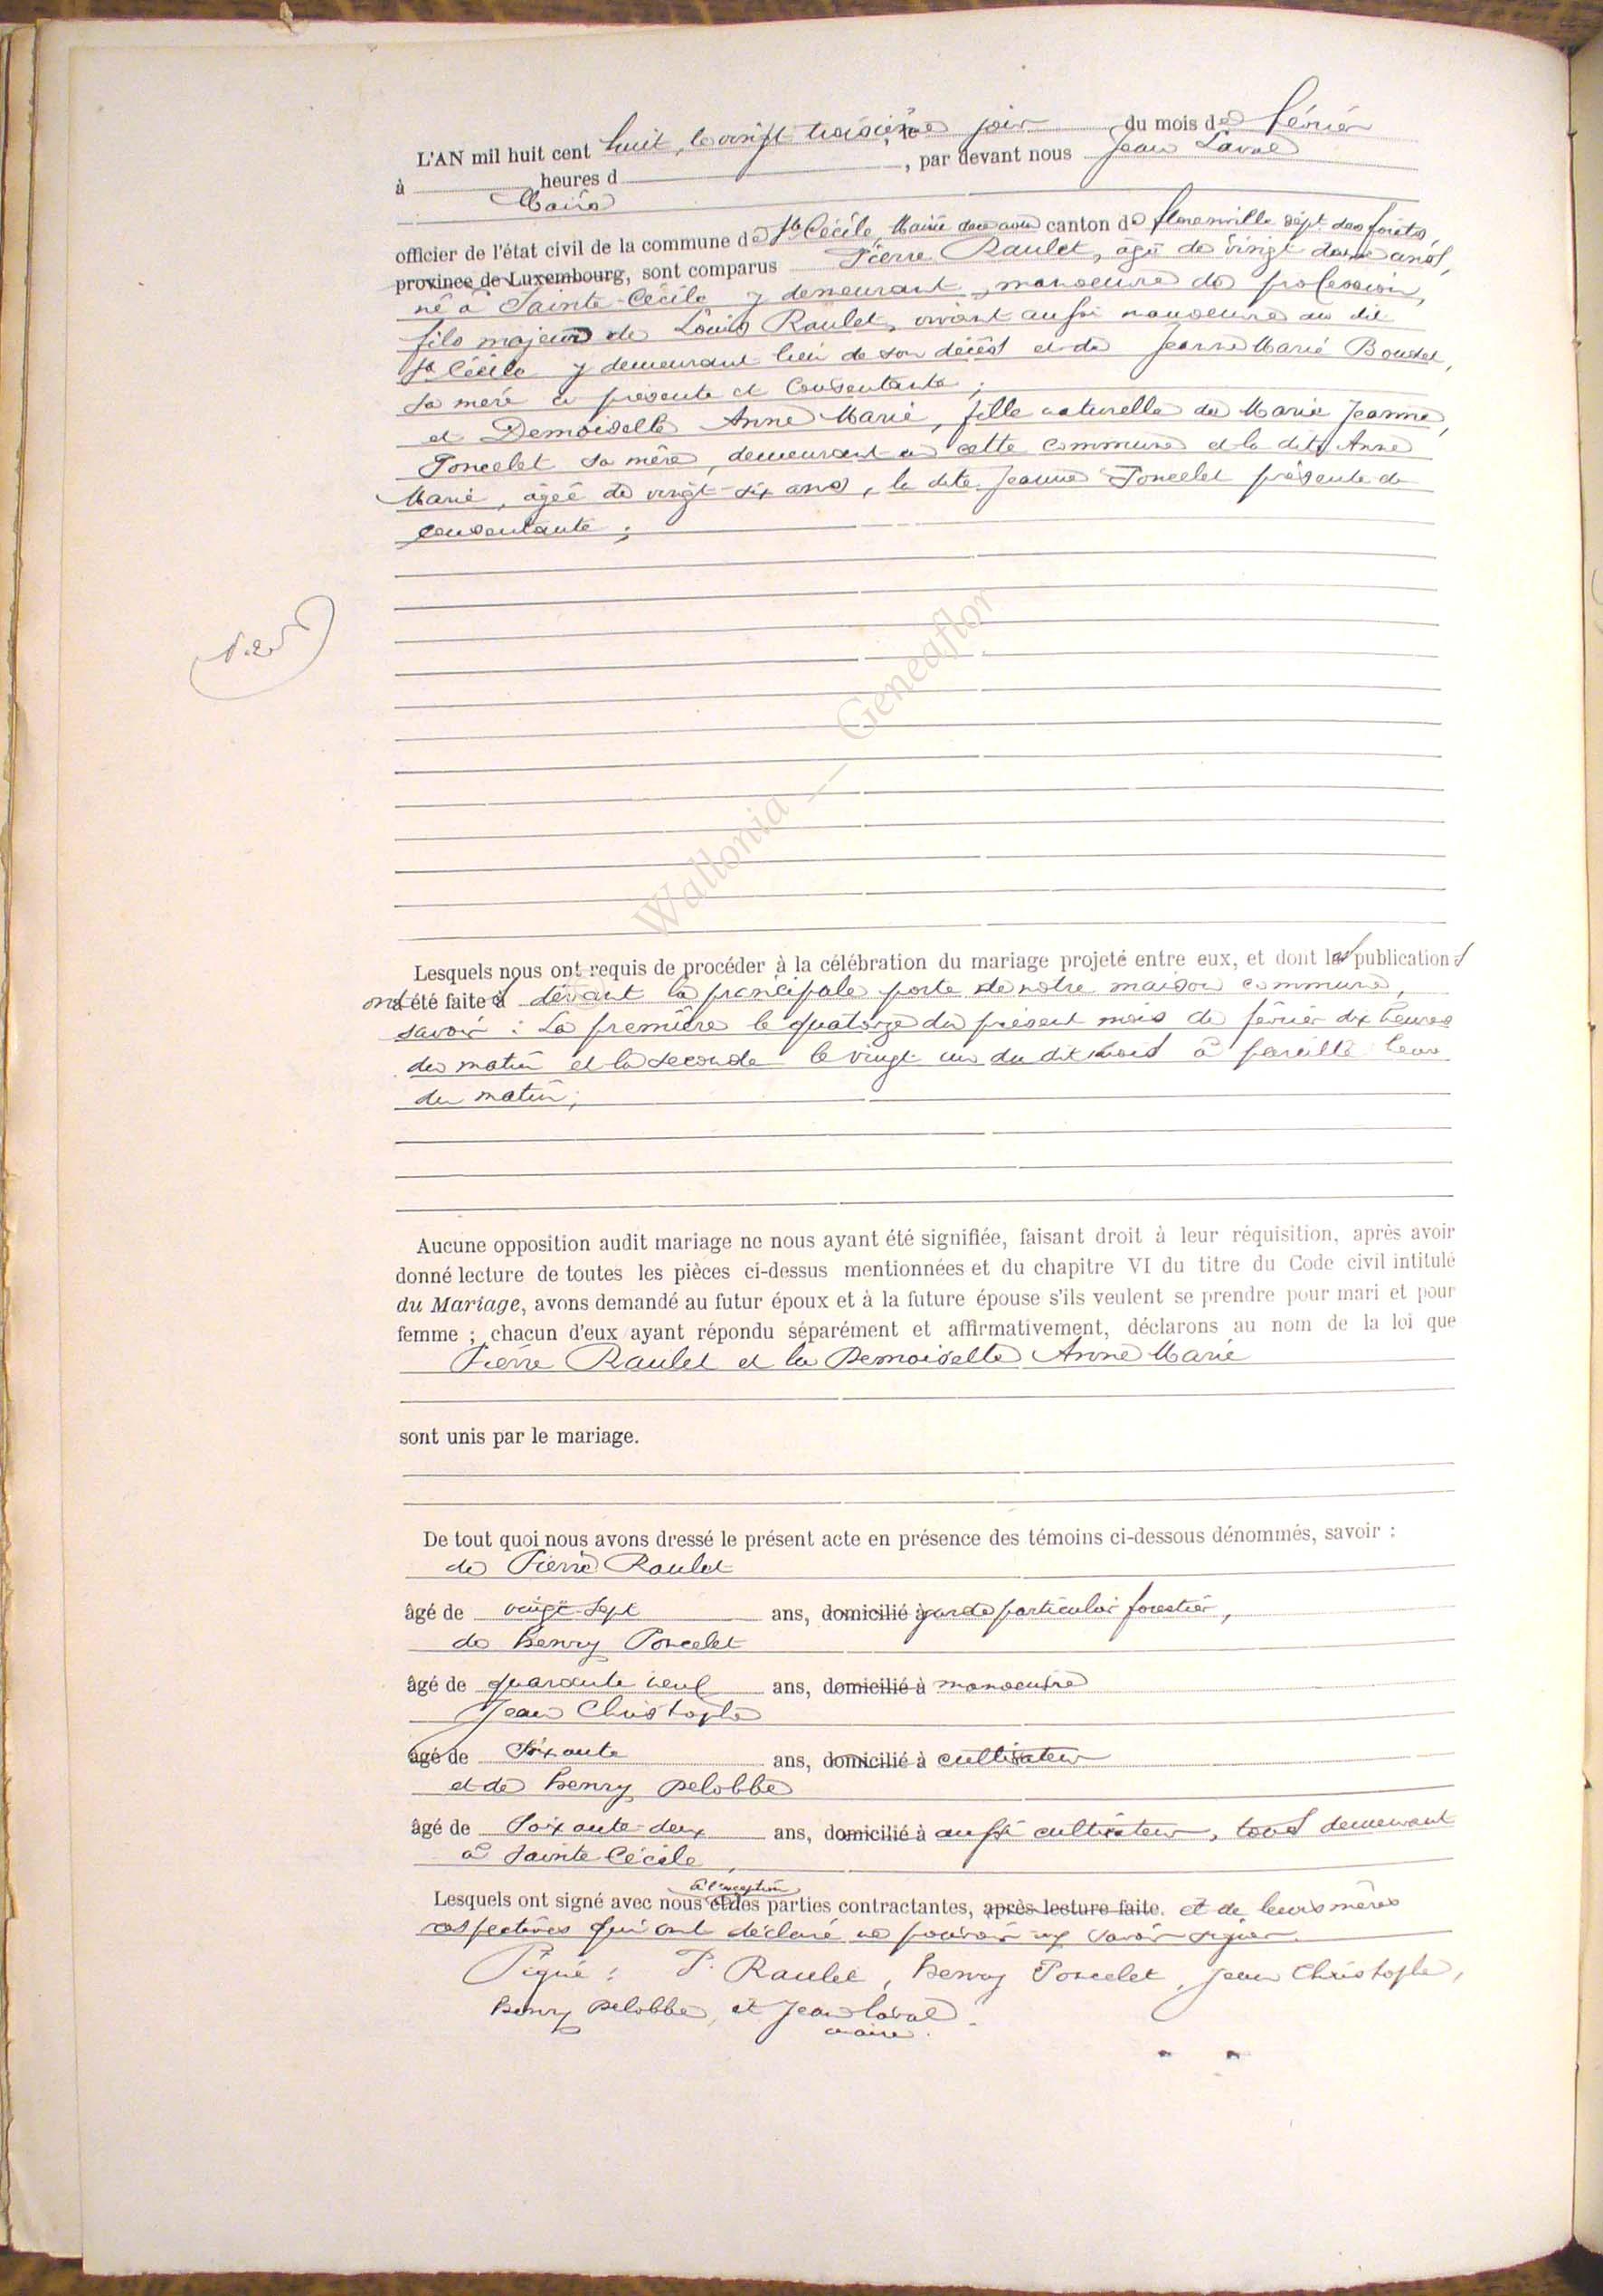 L'AN mil huit cent huit, le vingt troisième, le jour du mois de février
à heures d , par devant nous Jean Laval
Maire
officier de l'état civil de la commune de Ste Cécile, Mairie canton de florenville dépt. des forêts,
province de Luxembourg, sont comparus Pierre Raulet, âgé de vingt deux ans,
né à Sainte-Cécile y demeurant, manoeuvre de profession,
fils majeur de Louis Raulet, vivant aussi manoeuvre au dit
Ste Cécile y demeurant lieu de son décès et de Jeanne Marie Boudet,
sa mère ci présente et consentante ;
et Demoiselle Anne Marie, fille naturelle de Marie Jeanne,
Poncelet sa mère, demeurant en cette commune et la dite Anne
Marie, âgée de vingt-six ans, la dite Jeanne Poncelet présente et
consentante ;
Wallonia — Geneaflor
Lesquels nous ont requis de procéder à la célébration du mariage projeté entre eux, et dont les publications
ont été faites devant la principale porte de notre maison commune,
savoir : La première le quatorze du présent mois de février dix heures
du matin et la seconde le vingt un du dit mois à pareille heure
du matin,
Aucune opposition audit mariage ne nous ayant été signifiée, faisant droit à leur réquisition, après avoir
donné lecture de toutes les pièces ci-dessus mentionnées et du chapitre VI du titre du Code civil intitulé
du Mariage, avons demandé au futur époux et à la future épouse s'ils veulent se prendre pour mari et pour
femme ; chacun d'eux ayant répondu séparément et affirmativement, déclarons au nom de la loi que
Pierre Raulet et la Demoiselle Anne Marie
sont unis par le mariage.
De tout quoi nous avons dressé le présent acte en présence des témoins ci-dessous dénommés, savoir :
de Pierre Raulet
âgé de vingt-sept ans, domicilié à garde particulier forestier,
de henry Poncelet
âgé de quarante neuf ans, domicilié à manoeuvre
Jean Christophe
âgé de Soixante ans, domicilié à cultivateur
et de henry pelobbe
âgé de Soixante-deux ans, domicilié à aussi cultivateur, tous demeurant
à Sainte Cécile,
à l'exception
Lesquels ont signé avec nous et des parties contractantes, après lecture faite. et de leurs mères
respectives qui ont déclaré ne pouvoir ny savoir signer.
Signé : P. Raulet, henry Poncelet, Jean Christophe,
henry pelobbe, et Jean laval
maire.